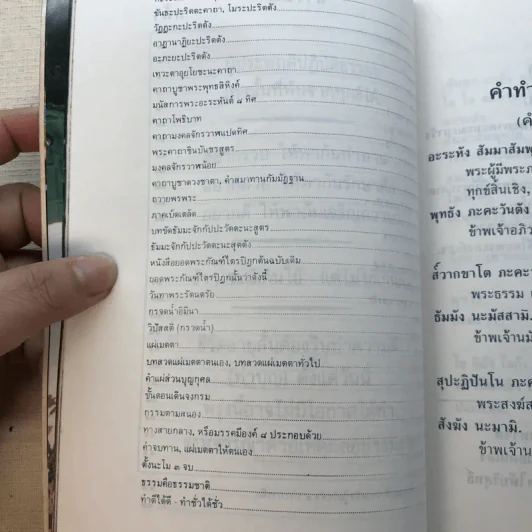 ขันธะปะริตตะคาถา, โมระปะริตตัง
วัฏฏะกะปะริตตัง
อาฏานาฏิยะปะริตตัง
อะภะยะปะริตตัง
เทวะดาอุยโยชะนะคาถา
คาถาบูชาพระพุทธสิหิงค์
มนัสการพระอะระหันต์ ๘ ทิศ
คาถาโพธิบาท
คาถามงคลจักรวาฬแปดทิศ
พระคาถาชินบัญชรสูตร
มงคลจักรวาฬน้อย
คาถาบูชาดวงชาตา, คำสมาทานกัมมัฏฐาน
ถวายพรพระ
ภาคเบ็ดเตล็ด
บทขัดธัมมะจักกัปปะวัตตะนะสูตร
ธัมมะจักกัปปะวัตตะนะสุตตัง
หนังสือยอดพระกัณฑ์ไตรปิฎกต้นฉบับเดิม
ยอดพระกัณฑ์ไตรปิฎกนั้นว่าดังนี้
วันทาพระรัตนตรัย
กรวดน้ำอิมินา
วิปัสสติ (กรวดน้ำ)
แผ่เมตตา
บทสวดแผ่เมตตาตนเอง, บทสวดแผ่เมตตาทั่วไป
คำแผ่ส่วนบุญกุศล
ขั้นตอนเดินจงกรม
กรรมตามสนอง
ทางสายกลาง, หรือมรรคมีองค์ ๘ ประกอบด้วย
คำจบทาน, แผ่เมตตาให้ตนเอง
ตั้งนะโม ๓ จบ
ธรรมะคือธรรมชาติ
ทำดีได้ดี - ทำชั่วได้ชั่ว
คำทำ
(ค
อะระหัง สัมมาสัมพุ
พระผู้มีพระภ
ทุกข์สิ้นเชิง,
พุทธัง ภะคะวันตัง
ข้าพเจ้าอภิว
ส๎วากขาโต ภะคะ
พระธรรม
ธัมมัง นะมัสสามิ.
ข้าพเจ้านม
สุปะฏิปันโน ภะค
พระสงฆ์ส
สังฆัง นะมามิ.
ข้าพเจ้าน